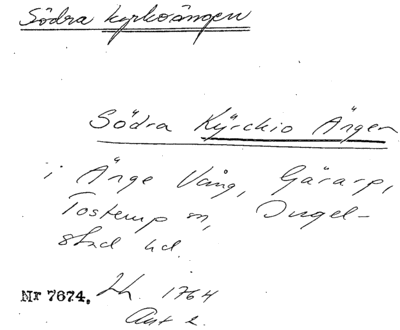 Södra kyrkoängen
Södra Kÿrckio Änger
i Änge Vång, Gärarp,
Tosterup sn, Ingel-
stad hd.
Nr 7674. Lh. 1764
Akt 2.